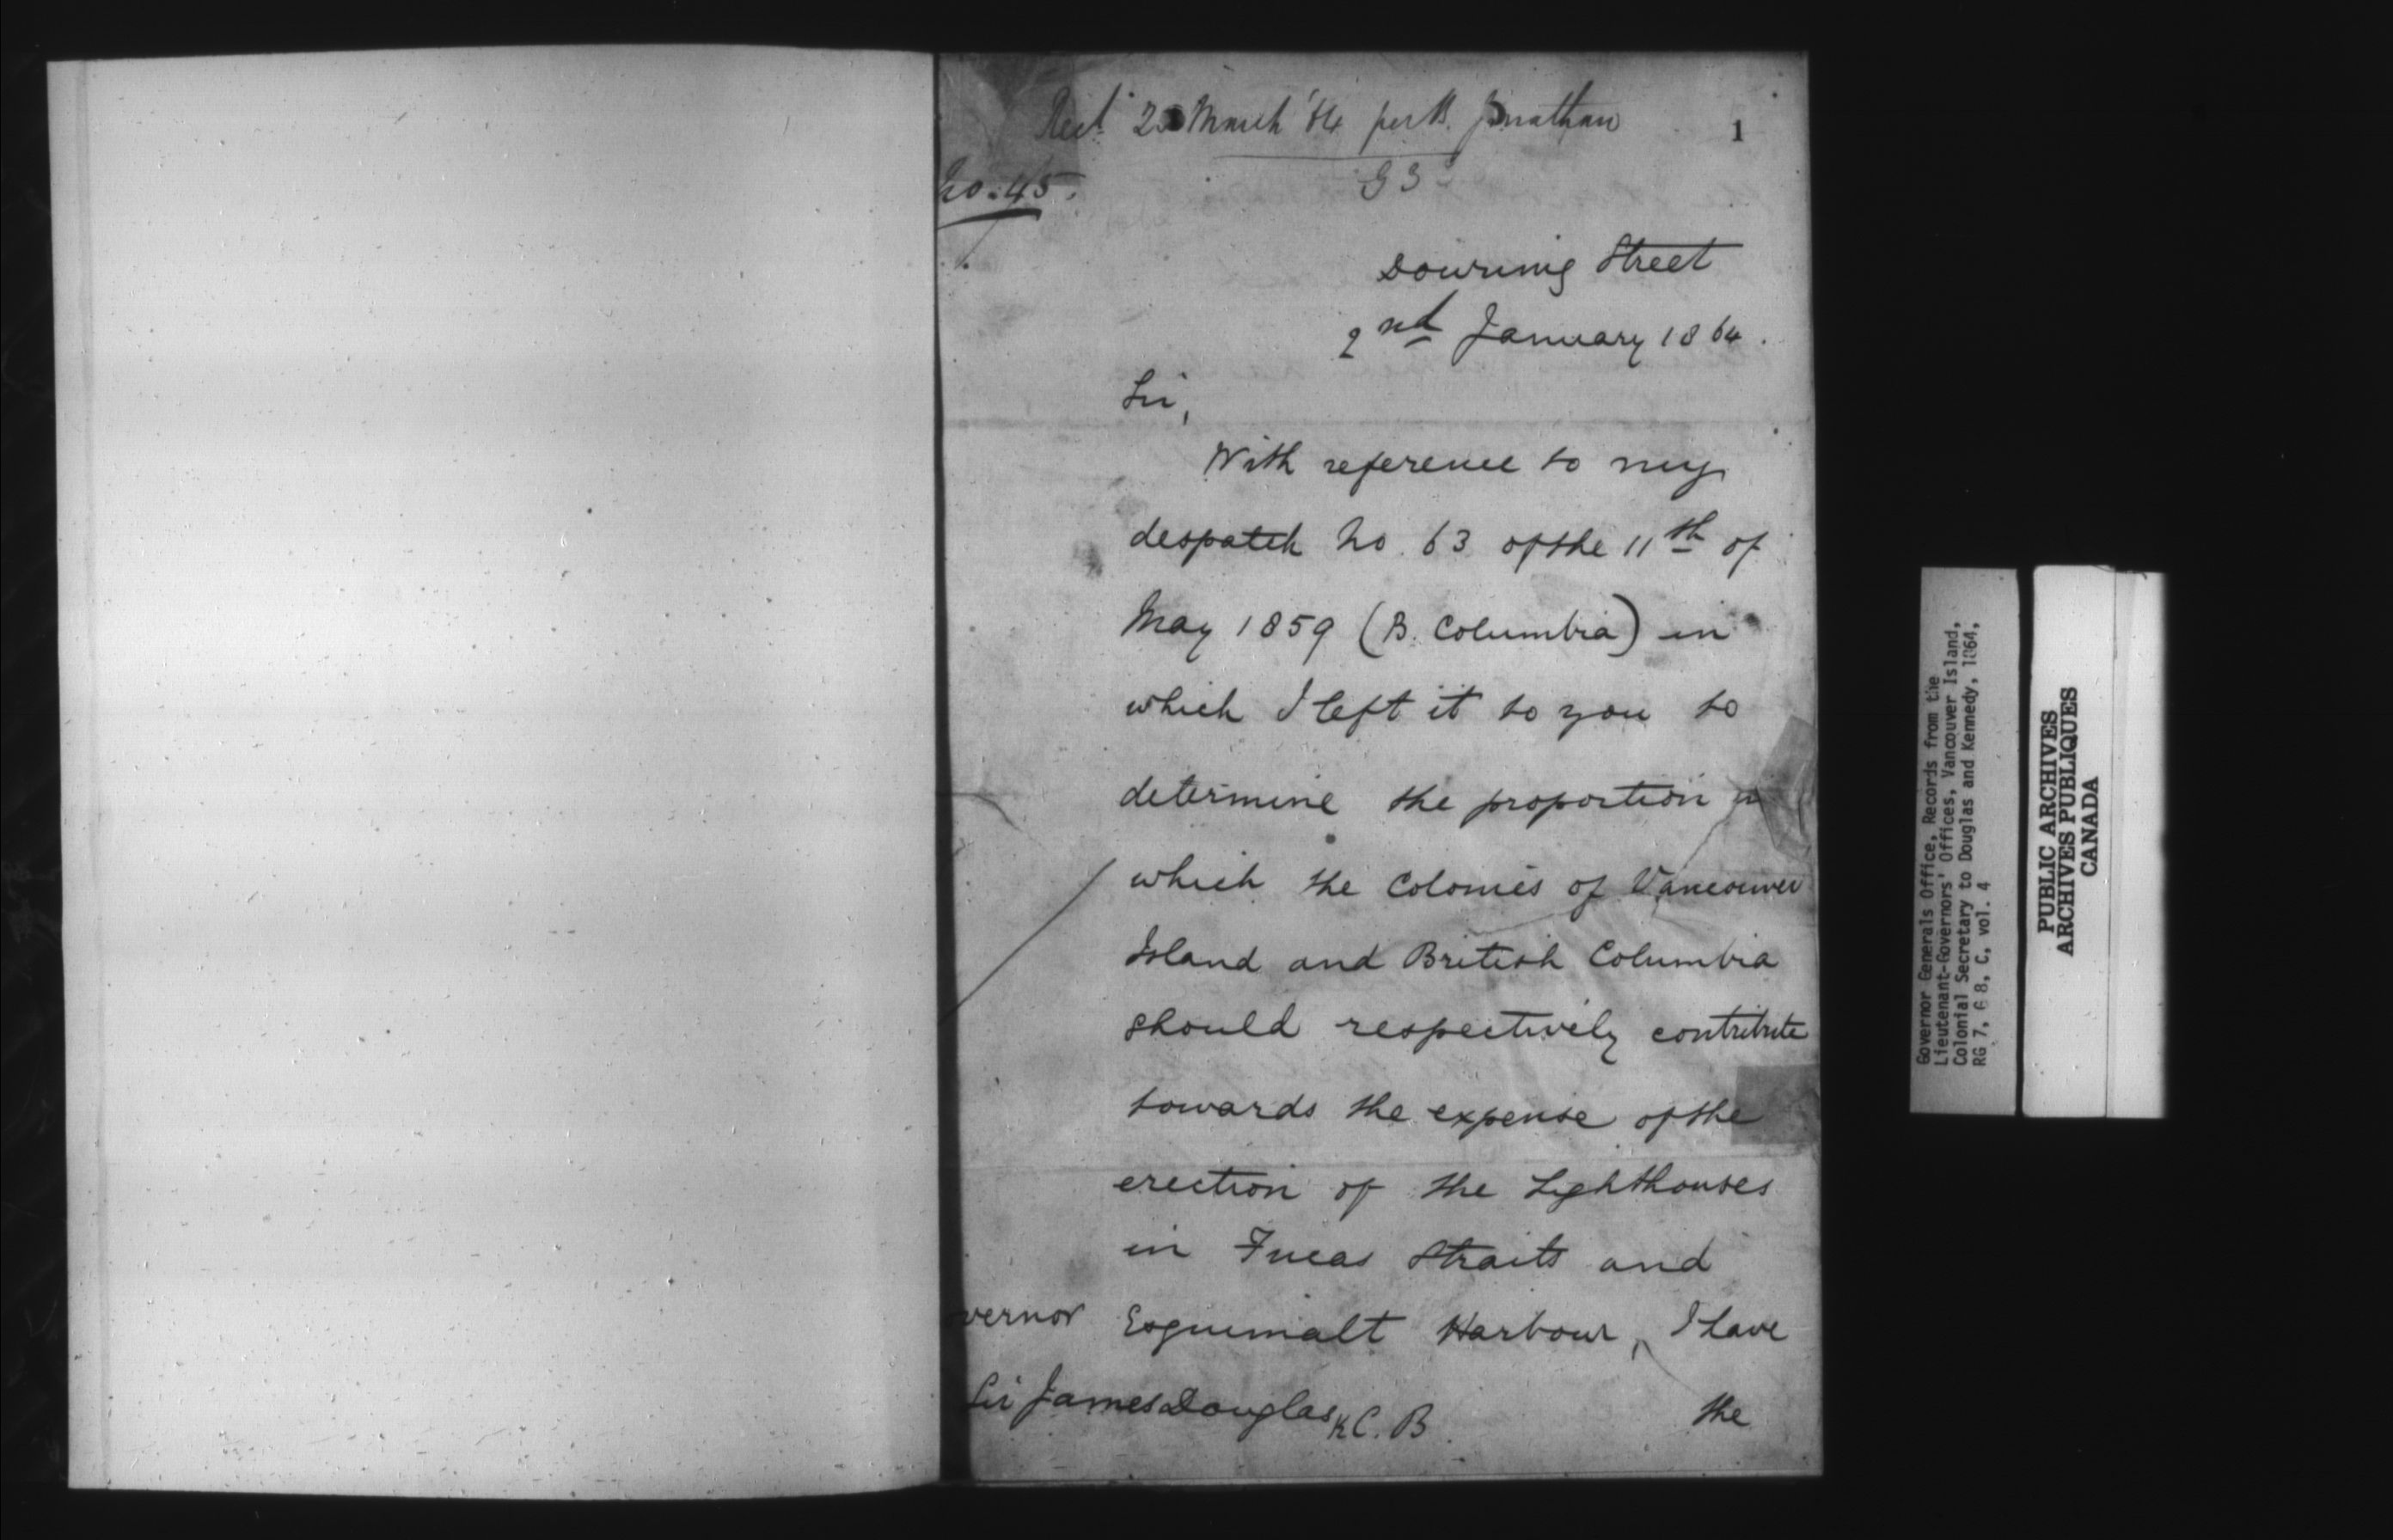 Recd 2 March '64 per Br. Jonathan
1
No. 45.
Downing Street
2nd January 1864.
Sir,
With reference to my
despatch No. 63 of the 11th of
May 1859 (B. Columbia) in
which I left it to you to
determine the proportion in
which the Colonies of Vancouver
Island and British Columbia
should respectively contribute
towards the expense of the
erection of the Lighthouses
in Fucas Straits and
vernor Esquimalt Harbour, I have
Sir James Douglas K.C.B. the
Governor Generals Office, Records from the
Lieutenant-Governors' Offices, Vancouver Island,
Colonial Secretary to Douglas and Kennedy, 1864,
RG 7, G 8, C, vol. 4
PUBLIC ARCHIVES
ARCHIVES PUBLIQUES
CANADA